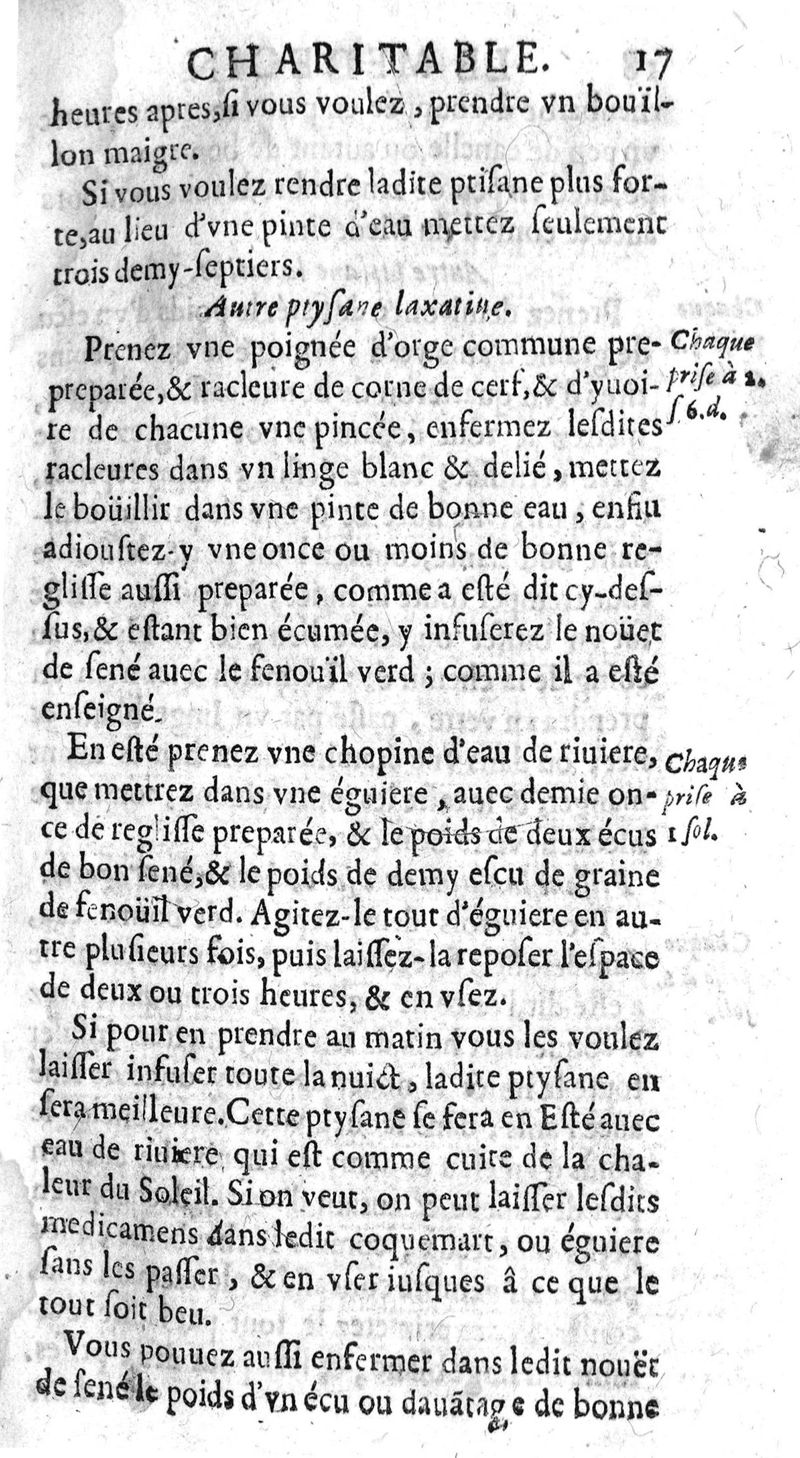 CHARITABLE. 17
heures apres,ſi vous voulez, prendre vn bouïl-
lon maigre.
Si vous voulez rendre ladite ptiſane plus for-
te,au lieu d'vne pinte d'eau mettez ſeulement
trois demy-ſeptiers.
Autre ptyſane laxatiue.
Prenez vne poignée d'orge commune pre-
preparée,& racleure de corne de cerf,& d'yuoi-
re de chacune vne pincée, enfermez leſdites
racleures dans vn linge blanc & delié, mettez
le boüillir dans vne pinte de bonne eau, enfin
adiouſtez-y vne once ou moins de bonne re-
gliſſe auſſi preparée, comme a eſté dit cy-deſ-
ſus,& eſtant bien écumée, y infuſerez le noüet
de ſené auec le fenouïl verd ; comme il a eſté
enſeigné.
Chaque
priſe à 2.
ſ 6.d.
En eſté prenez vne chopine d'eau de riuiere,
que mettrez dans vne éguiere, auec demie on-
ce de regliſſe preparée, & le poids de deux écus
de bon ſené,& le poids de demy eſcu de graine
de fenoüil verd. Agitez-le tout d'éguiere en au-
tre pluſieurs fois, puis laiſſez-la repoſer l'eſpace
de deux ou trois heures, & en vſez.
Chaque
priſe à
1 ſol.
Si pour en prendre au matin vous les voulez
laiſſer infuſer toute la nuict, ladite ptyſane en
ſera meilleure.Cette ptyſane ſe fera en Eſté auec
eau de riuiere qui eſt comme cuite de la cha-
leur du Soleil. Si on veut, on peut laiſſer leſdits
medicamens dans ledit coquemart, ou éguiere
ſans les paſſer, & en vſer iuſques â ce que le
tout ſoit beu.
Vous pouuez auſſi enfermer dans ledit nouët
de ſené le poids d'vn écu ou dauãtage de bonne